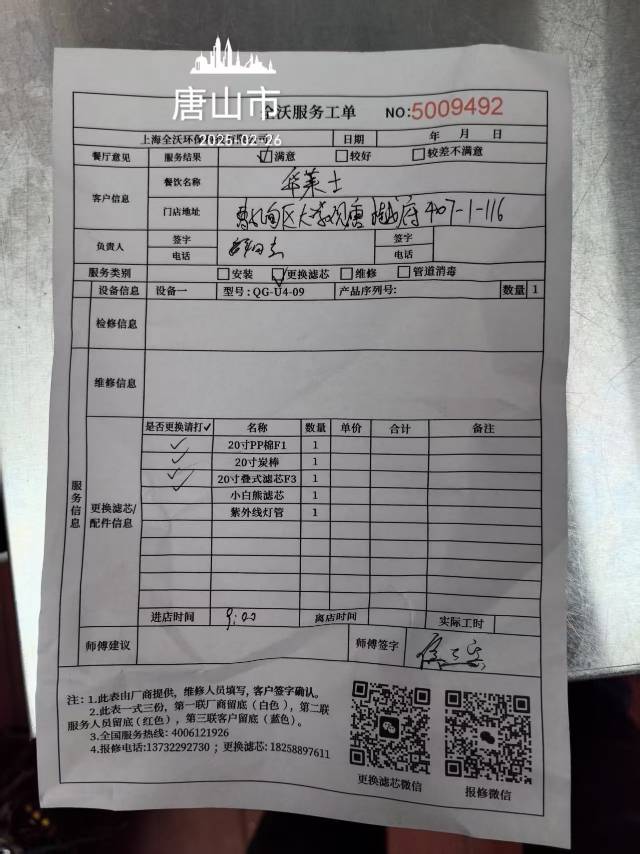 唐山市
2025-02-26
全沃服务工单 NO:5009492
上海全沃环保 日期 年 月 日
餐厅意见 服务结果 ☑满意 □较好 □较差不满意
客户信息 餐饮名称 华莱士
门店地址 曹妃甸区 407-1-116
负责人 签字 签字
电话 电话
服务类别 □安装 ☑更换滤芯 □维修 □管道消毒
设备信息 设备一 型号:QG-U4-09 产品序列号: 数量 1
检修信息
维修信息
服务信息
更换滤芯/配件信息
是否更换请打✓ 名称 数量 单价 合计 备注
✓ 20寸PP棉F1 1
✓ 20寸炭棒 1
✓ 20寸叠式滤芯F3 1
✓ 小白熊滤芯 1
紫外线灯管 1
进店时间 9:00 离店时间 实际工时
师傅建议 师傅签字
注:1.此表由厂商提供,维修人员填写,客户签字确认。
2.此表一式三份,第一联厂商留底(白色),第二联
服务人员留底(红色),第三联客户留底(蓝色)。
3.全国服务热线:4006121926
4.报修电话:13732292730 ;更换滤芯:18258897611
更换滤芯微信 报修微信